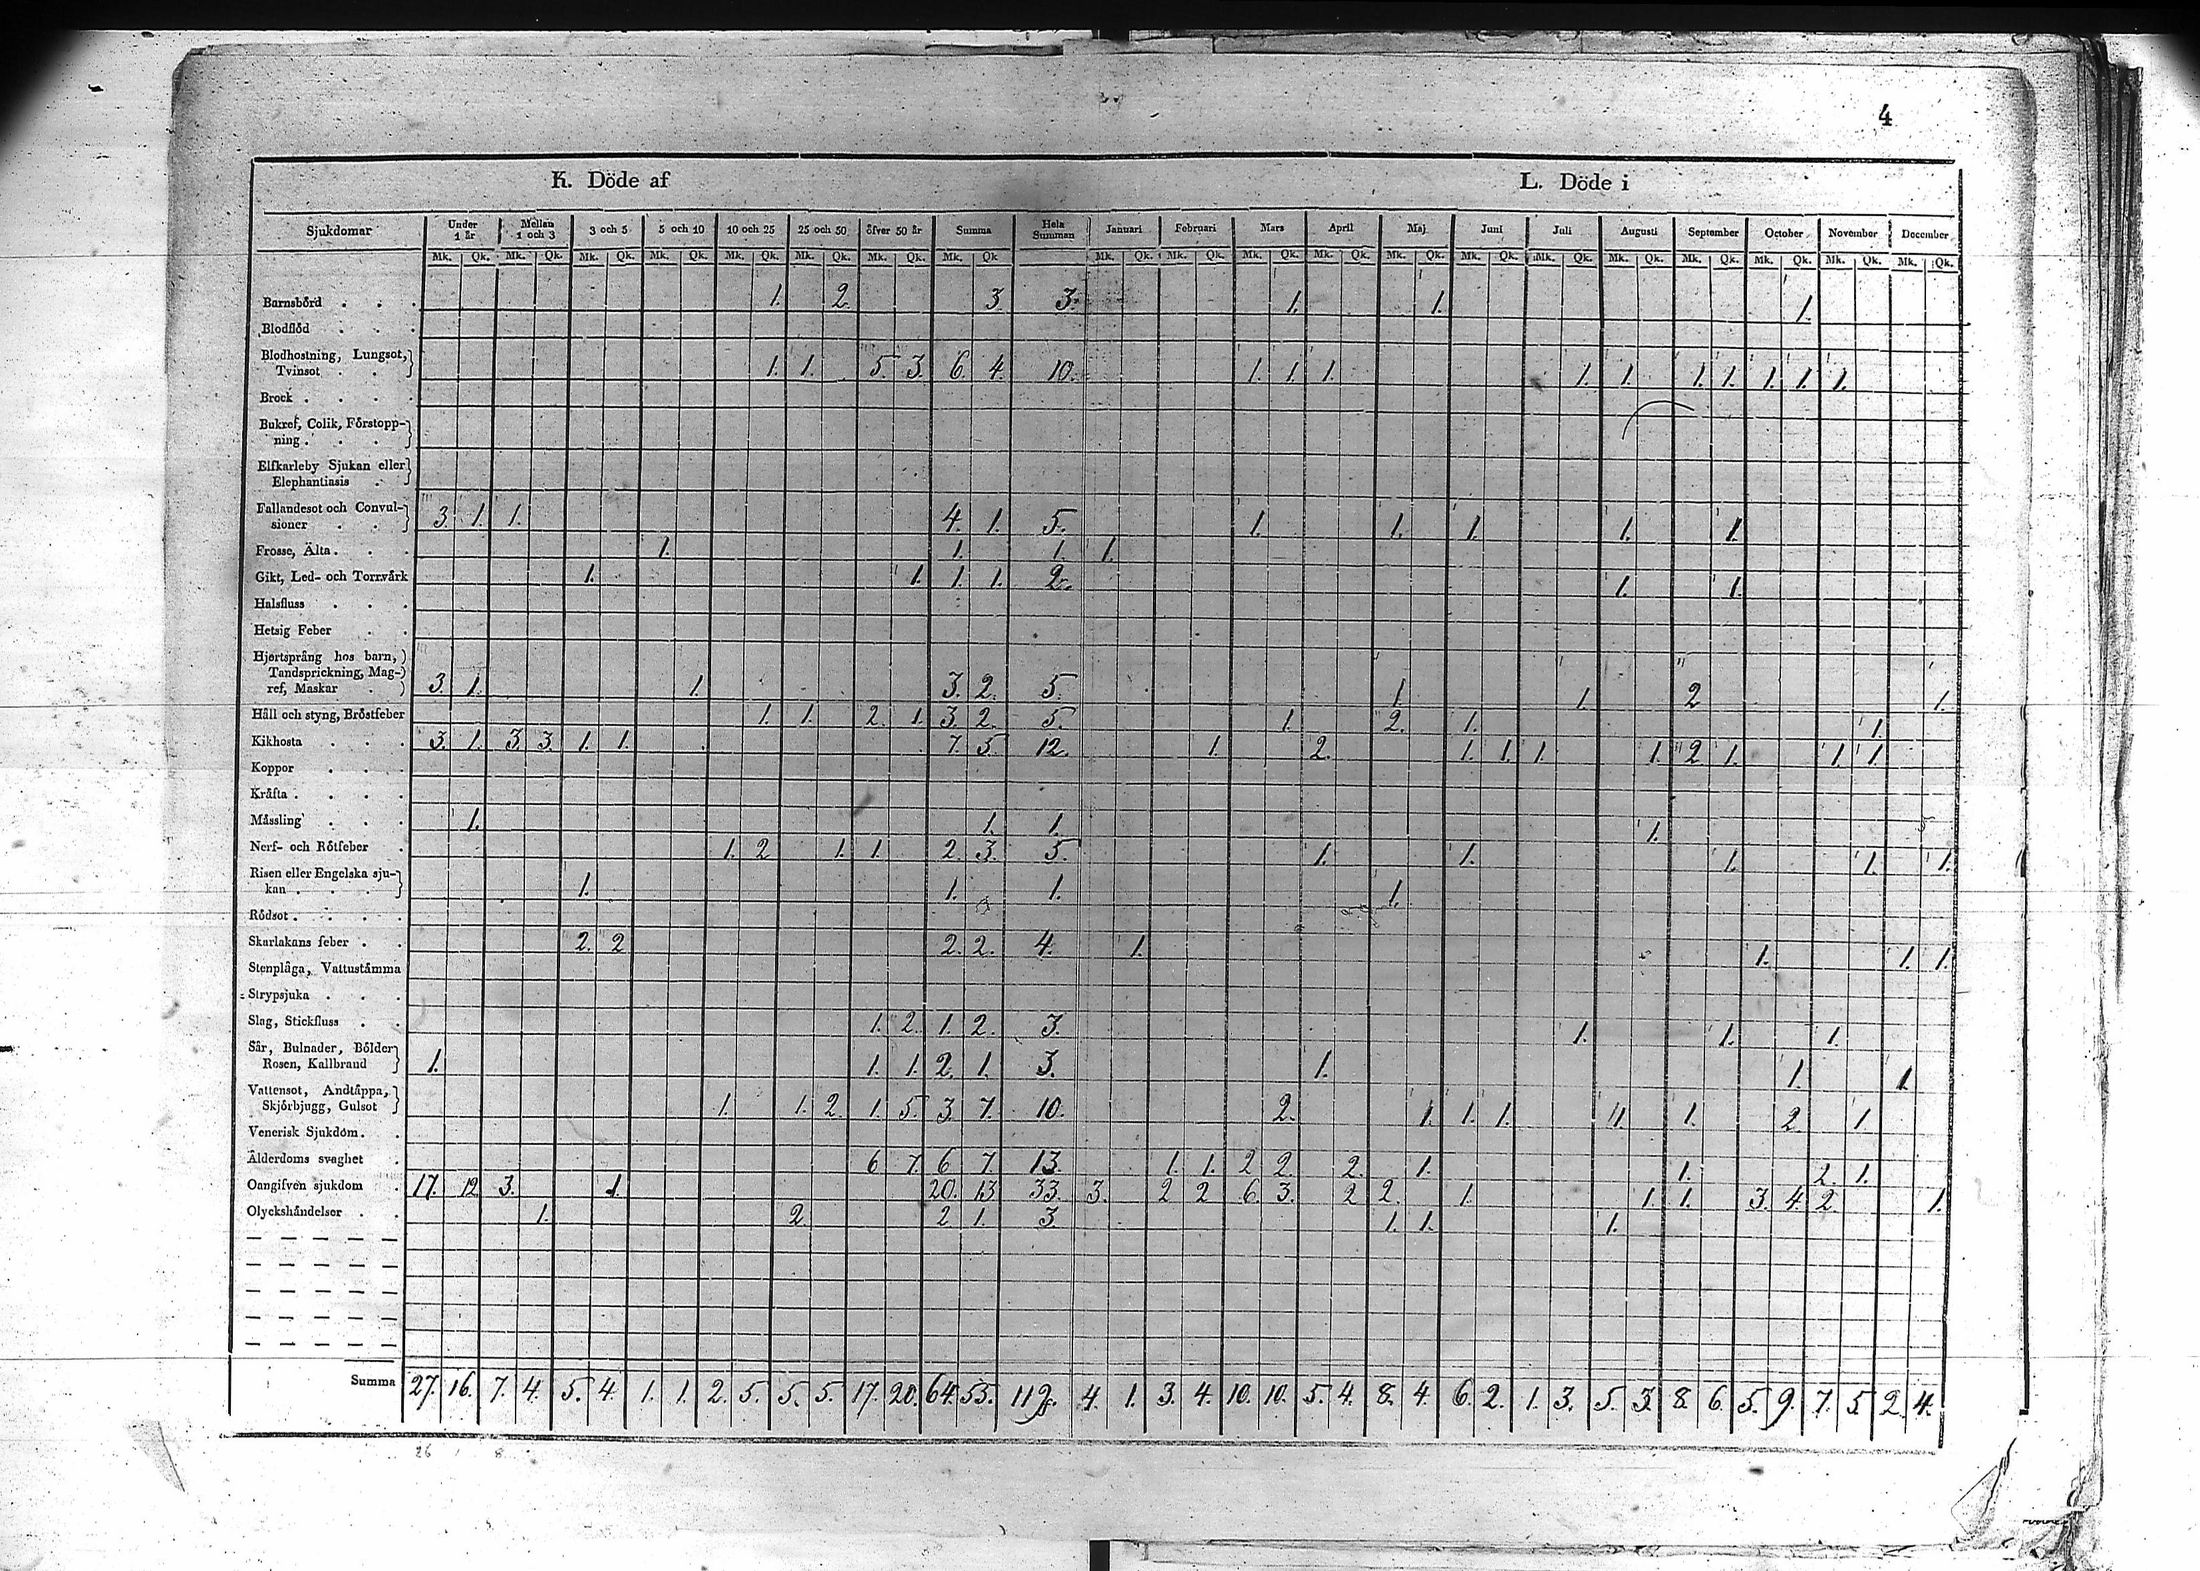 4
K. Döde af L. Döde i
Sjukdomar Under 1 år Mellan 1 och 3 3 och 5 5 och 10 10 och 25 25 och 50 öfver 50 år Summa Hela Summan Januari Februari Mars April Maj Juni Juli Augusti September October November December
Mk. Qk. Mk. Qk. Mk. Qk. Mk. Qk. Mk. Qk. Mk. Qk. Mk. Qk. Mk. Qk Mk. Qk. Mk. Qk. Mk. Qk. Mk. Qk. Mk. Qk. Mk. Qk. Mk. Qk. Mk. Qk. Mk. Qk. Mk. Qk. Mk. Qk. Mk. Qk.
Barnsbörd . . . 1. 2. 3. 3. 1. 1. 1.
Blodflöd . . .
Blodhostning, Lungsot,
Tvinsot . . 1. 1. 5. 3. 6. 4. 10. 1. 1. 1. 1. 1. 1. 1. 1. 1. 1.
Brock . . . .
Bukref, Colik, Förstopp-
ning . . .
Elfkarleby Sjukan eller
Elephantiasis .
Fallandesot och Convul-
sioner . . 3. 1. 1. 4. 1. 5. 1. 1. 1. 1. 1.
Frosse, Älta . . . 1. 1. 1. 1.
Gikt, Led- och Torrvärk 1. 1. 1. 1. 2. 1. 1.
Halsfluss . . .
Hetsig Feber . .
Hjertsprång hos barn,
Tandsprickning, Mag-
ref, Maskar . 3. 1. 1. 3. 2. 5. 1. 1. 2 1.
Håll och styng, Bröstfeber 1. 1. 2. 1. 3. 2. 5. 1. 2. 1. 1.
Kikhosta . . . 3. 1. 3. 3. 1. 1. 7. 5. 12. 1. 2. 1. 1. 1. 1. 2 1. 1. 1.
Koppor . . .
Kräfta . . . .
Mässling . . . 1. 1. 1. 1.
Nerf- och Rötfeber . 1. 2 1. 1. 2. 3. 5. 1. 1. 1. 1. 1.
Risen eller Engelska sju-
kan . . . . 1. 1. 1. 1.
Rödsot . . . .
Skarlakans feber . . 2. 2 2. 2. 4. 1. 1. 1. 1.
Stenplåga, Vattustämma
Strypsjuka . . .
Slag, Stickfluss . . 1. 2. 1. 2. 3. 1. 1. 1.
Sår, Bulnader, Bölder
Rosen, Kallbrand 1. 1. 1. 2. 1. 3. 1. 1. 1.
Vattensot, Andtäppa,
Skjörbjugg, Gulsot 1. 1. 2. 1. 5. 3. 7. 10. 2. 1. 1. 1. 1. 2. 1.
Venerisk Sjukdom . .
Ålderdoms svaghet . 6 7. 6 7. 13. 1. 1. 2 2. 2. 1. 1. 2. 1.
Oangifven sjukdom . 17. 12. 3. 1. 20. 13 33. 3. 2 2 6. 3. 2 2. 1. 1. 1. 3. 4. 2. 1.
Olyckshändelser . . 1. 2 2 1. 3. 1. 1. 1.
Summa 27. 16. 7. 4. 5. 4. 1. 1. 2. 5. 5. 5. 17. 20. 64. 55. 119. 4. 1. 3. 4. 10. 10. 5. 4. 8. 4. 6. 2. 1. 3. 5. 3. 8. 6. 5. 9. 7. 5 2. 4.
26 8